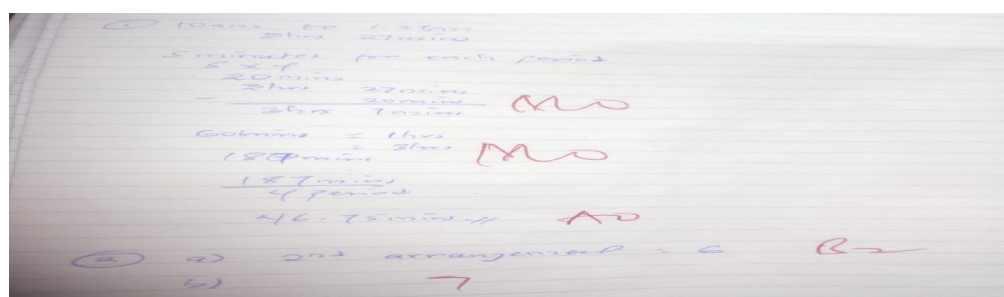 ① 10am to 1.27pm
3hrs 27mins
5 minutes for each period
5 x 4
20 mins
3hrs 27mins
- 20mins M0
3hrs 7mins
60mins = 1hrs
= 3hrs M0
187mins
4 period
46.75mins // A0
② a) 2nd arrangement = 6 B2
b) 7